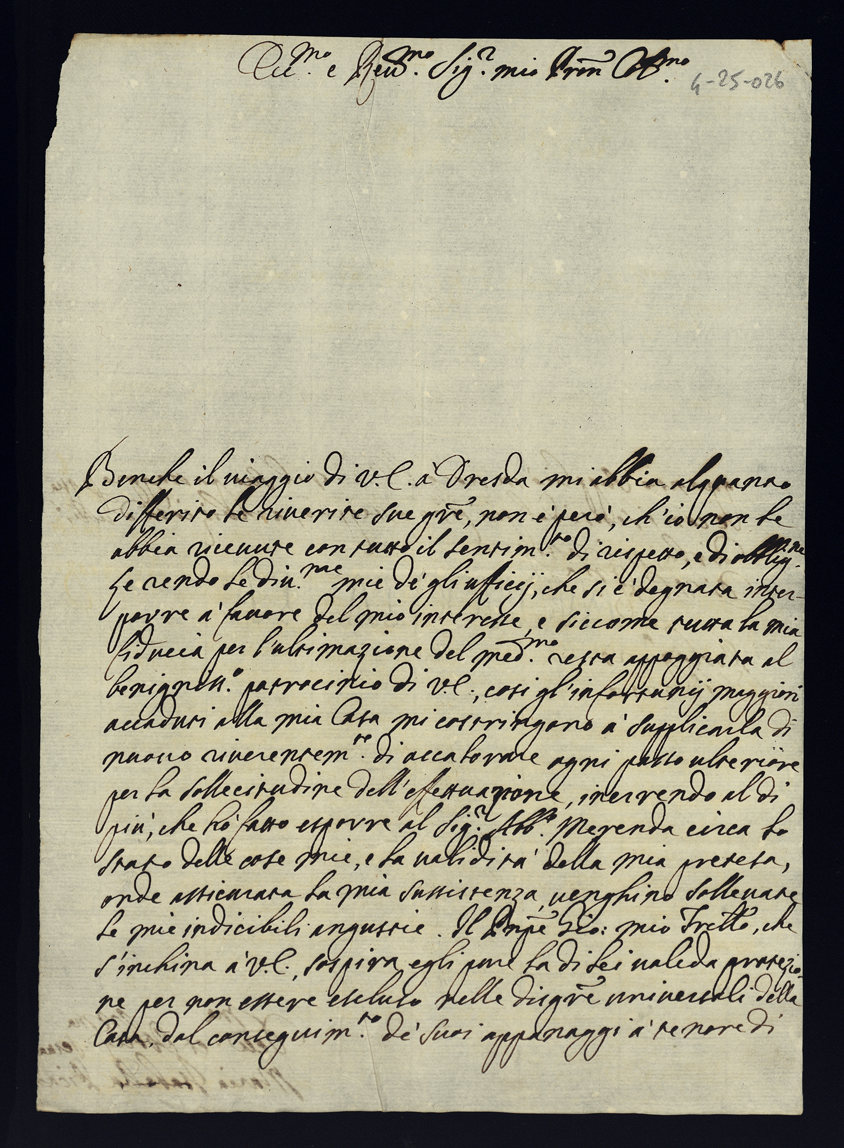 Ecc.mo e Reu.mo Sig.r mio Pron Col.mo
4-25-026
Benche il uiaggio di V.E. à Dresda mi abbia alquanto
differito le riuerite sue gre, non è però, ch'io non le
abbia riceuute con tutto il sentim.to di rispetto, e di obblig.ne
Le rendo le diu.me mie de gli ufficij, che si è degnata inter-
porre à fauore del mio interesse, e siccome tutta la mia
fiducia per l'ultimazione del med.mo resta appoggiata al
benigniss.o patrocinio di V.E., così gl'infortunij maggiori
accaduti alla mia Casa mi costringono à supplicarla di
nuouo riuerentem.te di accalorare ogni passo ulteriore
per la sollecitudine dell'effettuazione, inerrendo al di
più, che hò fatto esporre al Sig.r Abb.e Merenda circa lo
stato delle cose mie, e la ualidità della mia pretesa,
onde assicurata la mia sussistenza, uenghino solleuate
le mie indicibili angustie. Il Pnpe Gio: mio Frello, che
s'inchina à V.E., sospira egli pure la di Lei ualeda protezio-
ne per non essere escluso nelle disgre uniuersali della
Casa, dal conseguim.to de' suoi appanaggi à tenore di